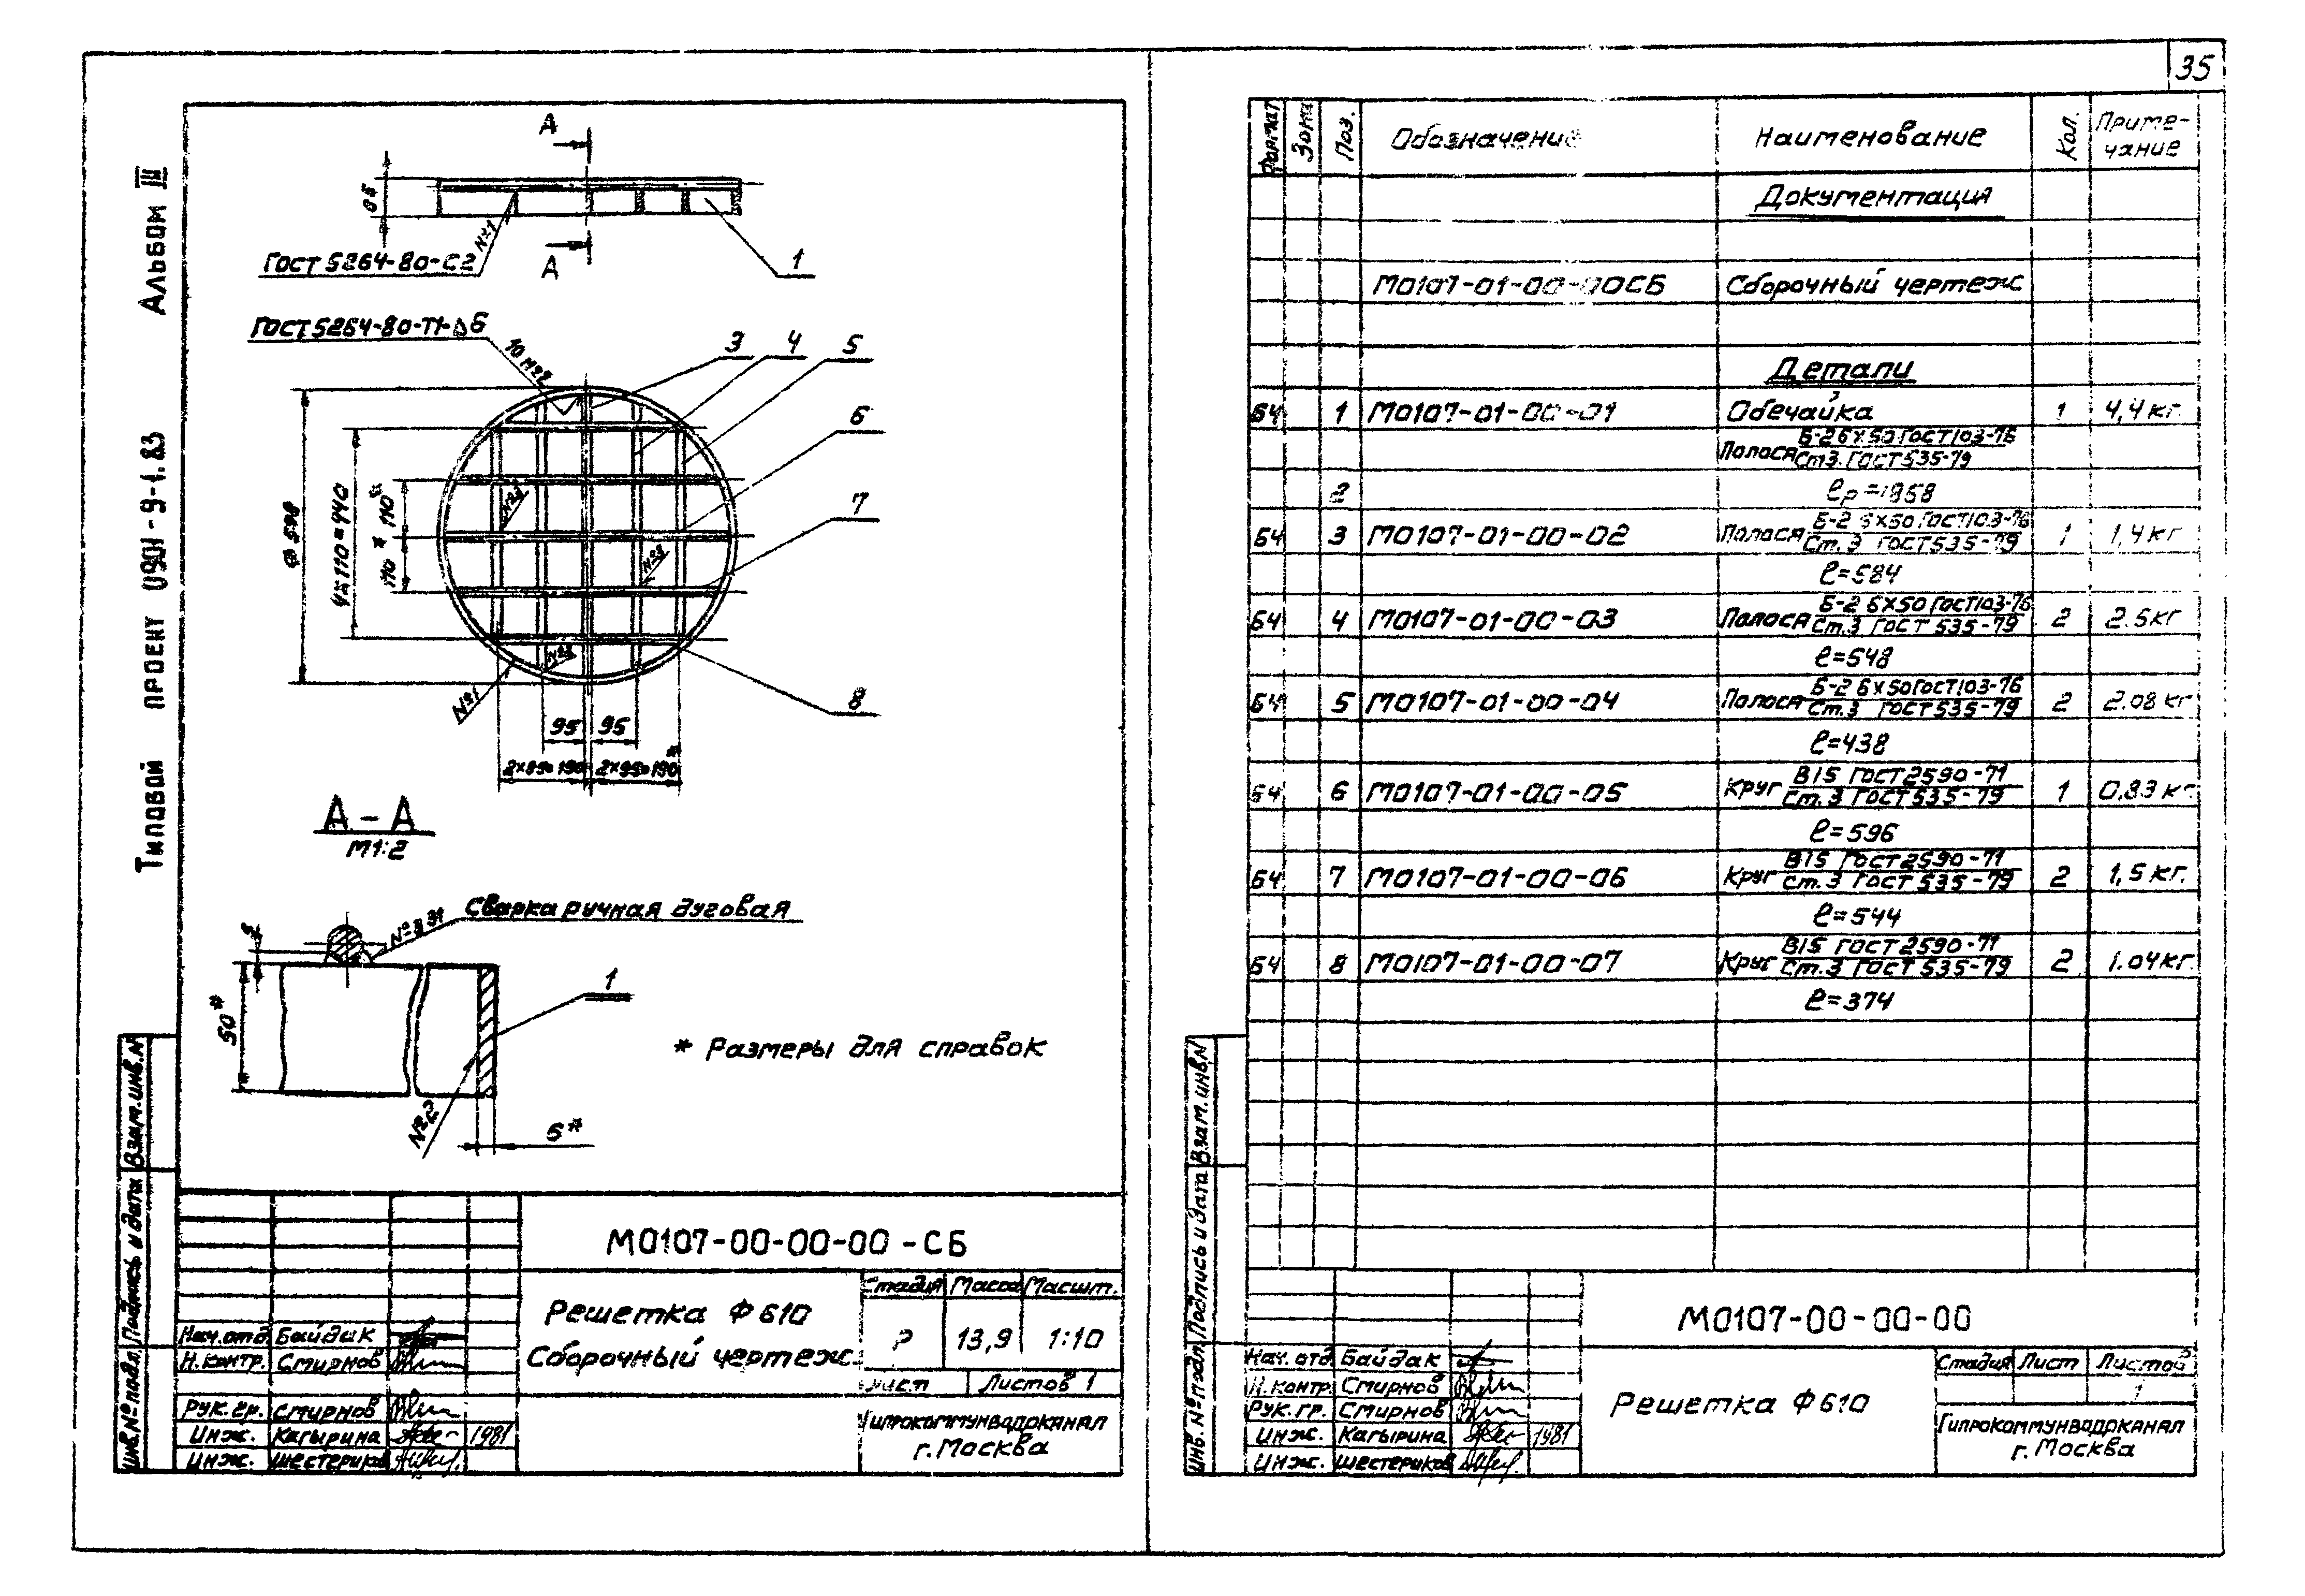 35
Альбом III
Типовой проект 0901-9-1.83
А
65
№1
ГОСТ 5264-80-С2
А
1
ГОСТ 5264-80-Т1-⊿6
10 №2
3
4
5
6
7
8
Ф 598
4×110=440
110*
110*
№3
№3
№3
№1
95
95
2×95=190
2×95=190*
А-А
М1:2
Сварка ручная дуговая
50*
1
№2
6*
* Размеры для справок
Взам. инв. №
Подпись и дата
Инв. № подл.
М0107-00-00-00-СБ
Решетка Ф610
Сборочный чертеж
Стадия Масса Масшт.
Р 13,9 1:10
Лист Листов 1
Гипрокоммунводоканал
г. Москва
Нач. отд. Байдак
Н. контр. Смирнов
Рук. гр. Смирнов
Инж. Кагырина 1981
Инж. Шестериков
Формат Зона Поз. Обозначение Наименование Кол. Примечание
Документация
М0107-01-00-00СБ Сборочный чертеж
Детали
БЧ 1 М0107-01-00-01 Обечайка 1 4,4 кг.
Полоса Б-2 6×50 ГОСТ 103-76
Ст3. ГОСТ 535-79
2 ℓр=1858
БЧ 3 М0107-01-00-02 Полоса Б-2 6×50 ГОСТ 103-76 1 1,4 кг
Ст. 3 ГОСТ 535-79
ℓ=584
БЧ 4 М0107-01-00-03 Полоса Б-2 6×50 ГОСТ 103-76 2 2.5 кг
Ст. 3 ГОСТ 535-79
ℓ=548
БЧ 5 М0107-01-00-04 Полоса Б-2 6×50 ГОСТ 103-76 2 2.08 кг
Ст. 3 ГОСТ 535-79
ℓ=438
БЧ 6 М0107-01-00-05 Круг В15 ГОСТ 2590-71 1 0,83 кг.
Ст. 3 ГОСТ 535-79
ℓ=596
БЧ 7 М0107-01-00-06 Круг В15 ГОСТ 2590-71 2 1,5 кг.
Ст. 3 ГОСТ 535-79
ℓ=544
БЧ 8 М0107-01-00-07 Круг В15 ГОСТ 2590-71 2 1.04 кг.
Ст. 3 ГОСТ 535-79
ℓ=374
Взам. инв. №
Подпись и дата
Инв. № подл.
М0107-00-00-00
Решетка Ф610
Стадия Лист Листов
1
Гипрокоммунводоканал
г. Москва
Нач. отд. Байдак
Н. контр. Смирнов
Рук. гр. Смирнов
Инж. Кагырина 1981
Инж. Шестериков